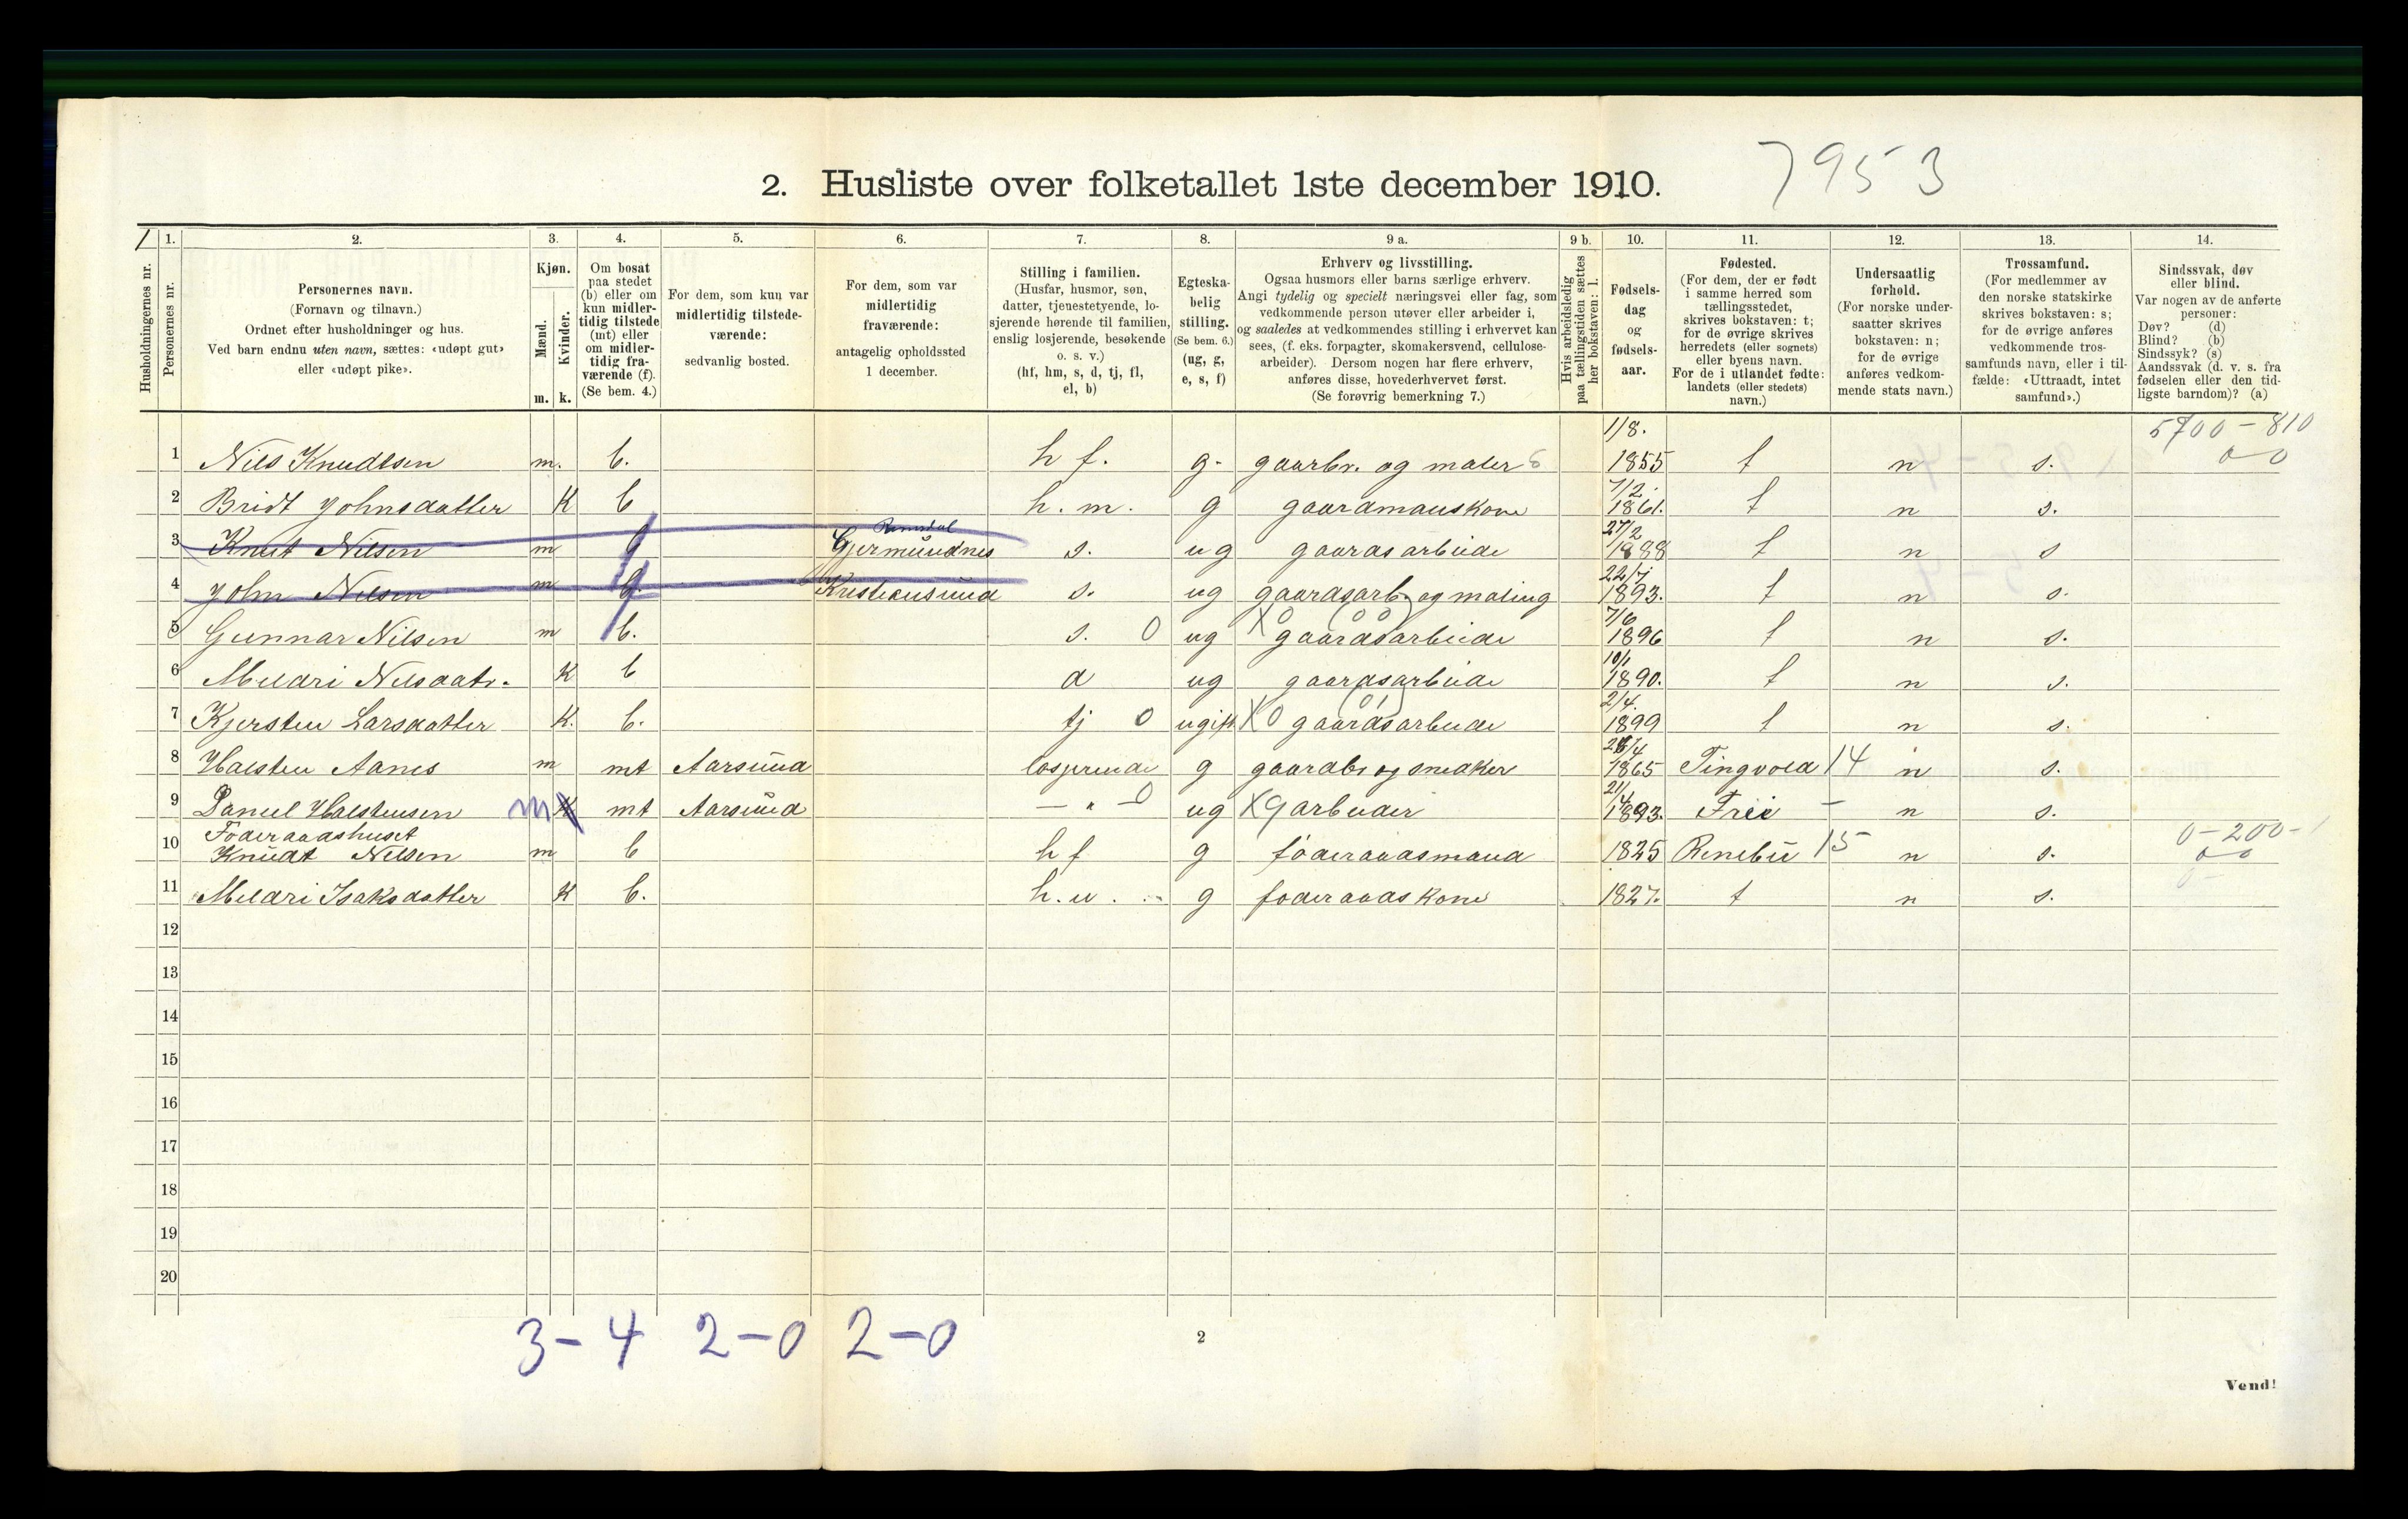 7953
2. Husliste over folketallet 1ste december 1910.
1
1. 2. 3. 4. 5. 6. 7. 8. 9 a. 9 b. 10. 11. 12. 13. 14.
Husholdningernes nr.
Personernes nr.
Personernes navn.
(Fornavn og tilnavn.)
Ordnet efter husholdninger og hus.
Ved barn endnu uten navn, sættes: «udøpt gut»
eller «udøpt pike».
Kjøn.
Mænd.
Kvinder.
m. k.
Om bosat
paa stedet
(b) eller om
kun midler-
tidig tilstede
(mt) eller
om midler-
tidig fra-
værende (f).
(Se bem. 4.)
For dem, som kun var
midlertidig tilstede-
værende:
sedvanlig bosted.
For dem, som var
midlertidig
fraværende:
antagelig opholdssted
1 december.
Stilling i familien.
(Husfar, husmor, søn,
datter, tjenestetyende, lo-
sjerende hørende til familien,
enslig losjerende, besøkende
o. s. v.)
(hf, hm, s, d, tj, fl,
el, b)
Egteska-
belig
stilling.
(Se bem. 6.)
(ug, g,
e, s, f)
Erhverv og livsstilling.
Ogsaa husmors eller barns særlige erhverv.
Angi tydelig og specielt næringsvei eller fag, som
vedkommende person utøver eller arbeider i,
og saaledes at vedkommendes stilling i erhvervet kan
sees, (f. eks. forpagter, skomakersvend, cellulose-
arbeider). Dersom nogen har flere erhverv,
anføres disse, hovederhvervet først.
(Se forøvrig bemerkning 7.)
Hvis arbeidsledig
paa tællingstiden sættes
her bokstaven: l.
Fødsels-
dag
og
fødsels-
aar.
Fødested.
(For dem, der er født
i samme herred som
tællingsstedet,
skrives bokstaven: t;
for de øvrige skrives
herredets (eller sognets)
eller byens navn.
For de i utlandet fødte:
landets (eller stedets)
navn.)
Undersaatlig
forhold.
(For norske under-
saatter skrives
bokstaven: n;
for de øvrige
anføres vedkom-
mende stats navn.)
Trossamfund.
(For medlemmer av
den norske statskirke
skrives bokstaven: s;
for de øvrige anføres
vedkommende tros-
samfunds navn, eller i til-
fælde: «Uttraadt, intet
samfund».)
Sindssvak, døv
eller blind.
Var nogen av de anførte
personer:
Døv? (d)
Blind? (b)
Sindssyk? (s)
Aandssvak (d. v. s. fra
fødselen eller den tid-
ligste barndom)? (a)
1/8. 5700 - 810
1 Nils Knudtsen m. b. h f. g. gaarbr. og maler 1855 t n s. 0-0
7/2.
2 Bridt Johnsdatter K b h. m. g gaardmanskone 1861. t n s.
Romsdal 27/2
3 Knut Nilsen m Gjermundnes s. ug gaardsarbeide 1888 t n s
4 John Nilsen m Kristiansund s. ug gaardsarb. og maling 1893. t n s.
7/6
5 Gunnar Nilsen m b. s. 0 ug X0 gaardsarbeide 1896 t n s.
10/1
6 Meldri Nilsdatr. K b d ug gaardsarbeide 1890. t n s.
2/4.
7 Kjersten Larsdatter K. b. tj 0 ugift X0 gaardsarbeide 1899 t n s.
8 Halsten Aanes m mt Aarsund losjerende g gaardbr og snedker 1865 Tingvold 14 n s.
9 Daniel Halstensen m mt Aarsund — „ — 0 ug X9 arbeider 1893. Frei - n s.
Föderaadshuset 0-200-1
10 Knudt Nilsen m b h f g föderaadsmand 1825 Renebu 15 n s. 0-0
11 Meldri Isaksdatter K b. g foderaadskone 1827. t n s.
12
13
14
15
16
17
18
19
20
3-4 2-0 2-0
2
Vend!